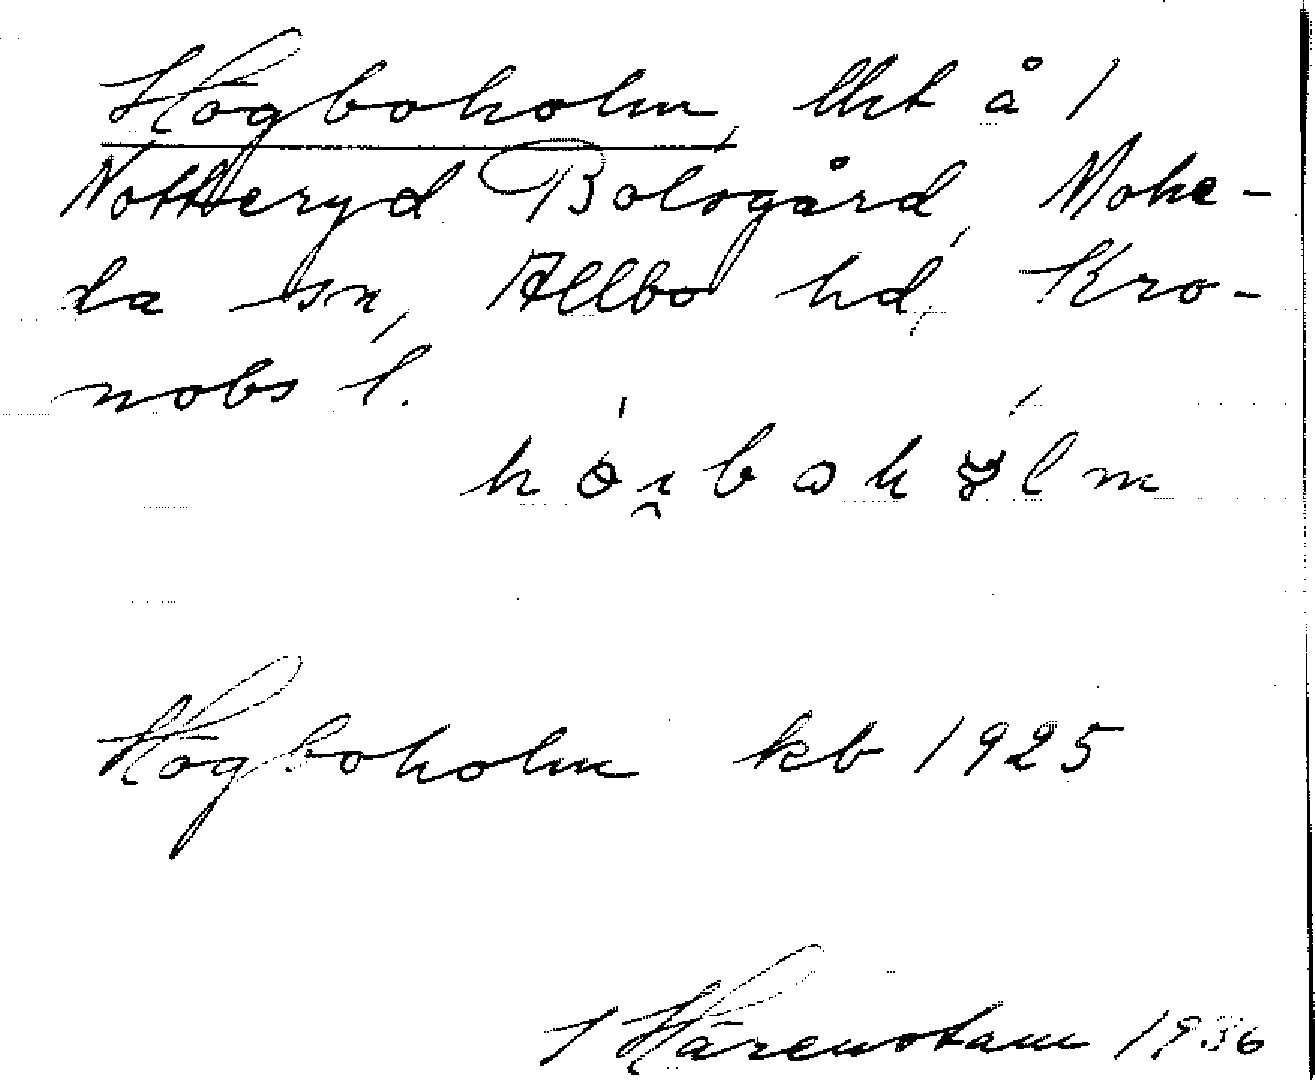 Högboholm, lht å 1
Notteryd Bolsgård, Mohe-
da sn, Allbo hd, Kro-
nobs l.
Högboholm kb 1925
Härenstam 1936